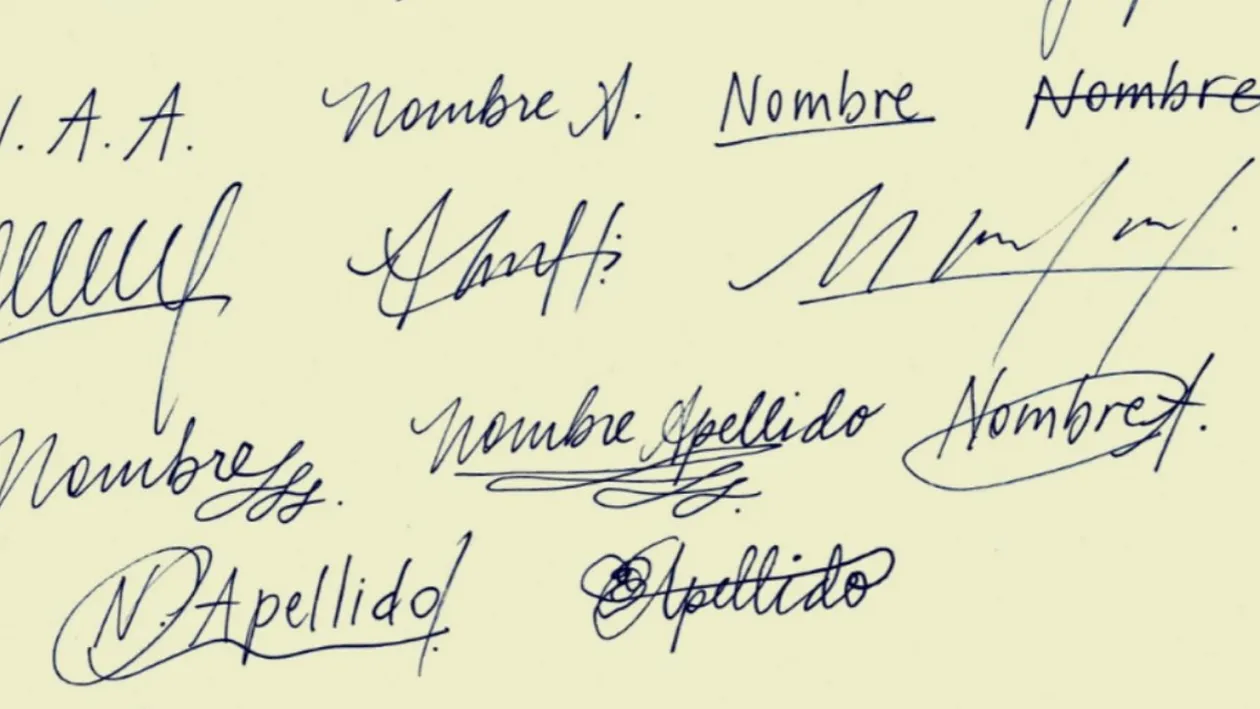 . A. A. Nombre A. Nombre Nombre
Nombre Nombre Apellido Nombre A.
N. Apellido Apellido